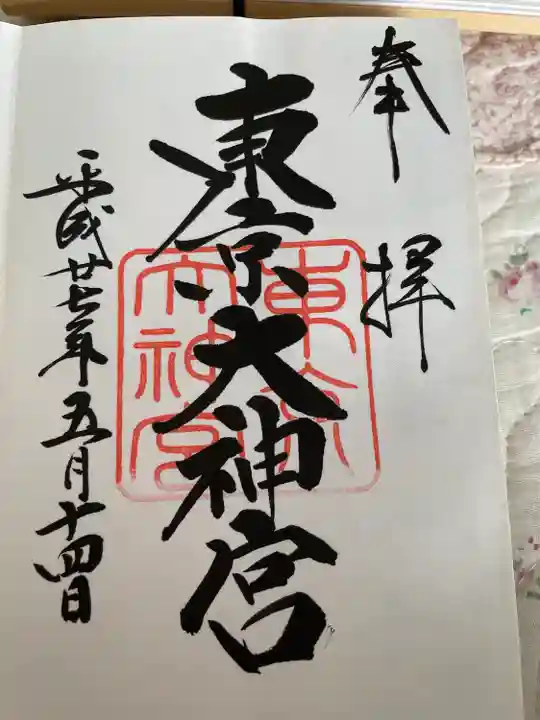 奉拝
東京大神宮
東京大神宮
平成廿七年五月十四日